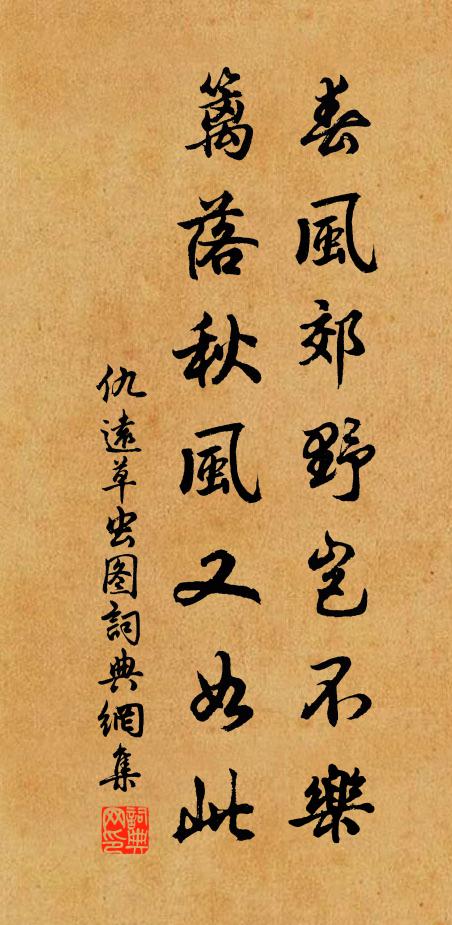 春風郊野豈不樂
籬落秋風又如此
仇遠草虫图詞典網集
詞典网印